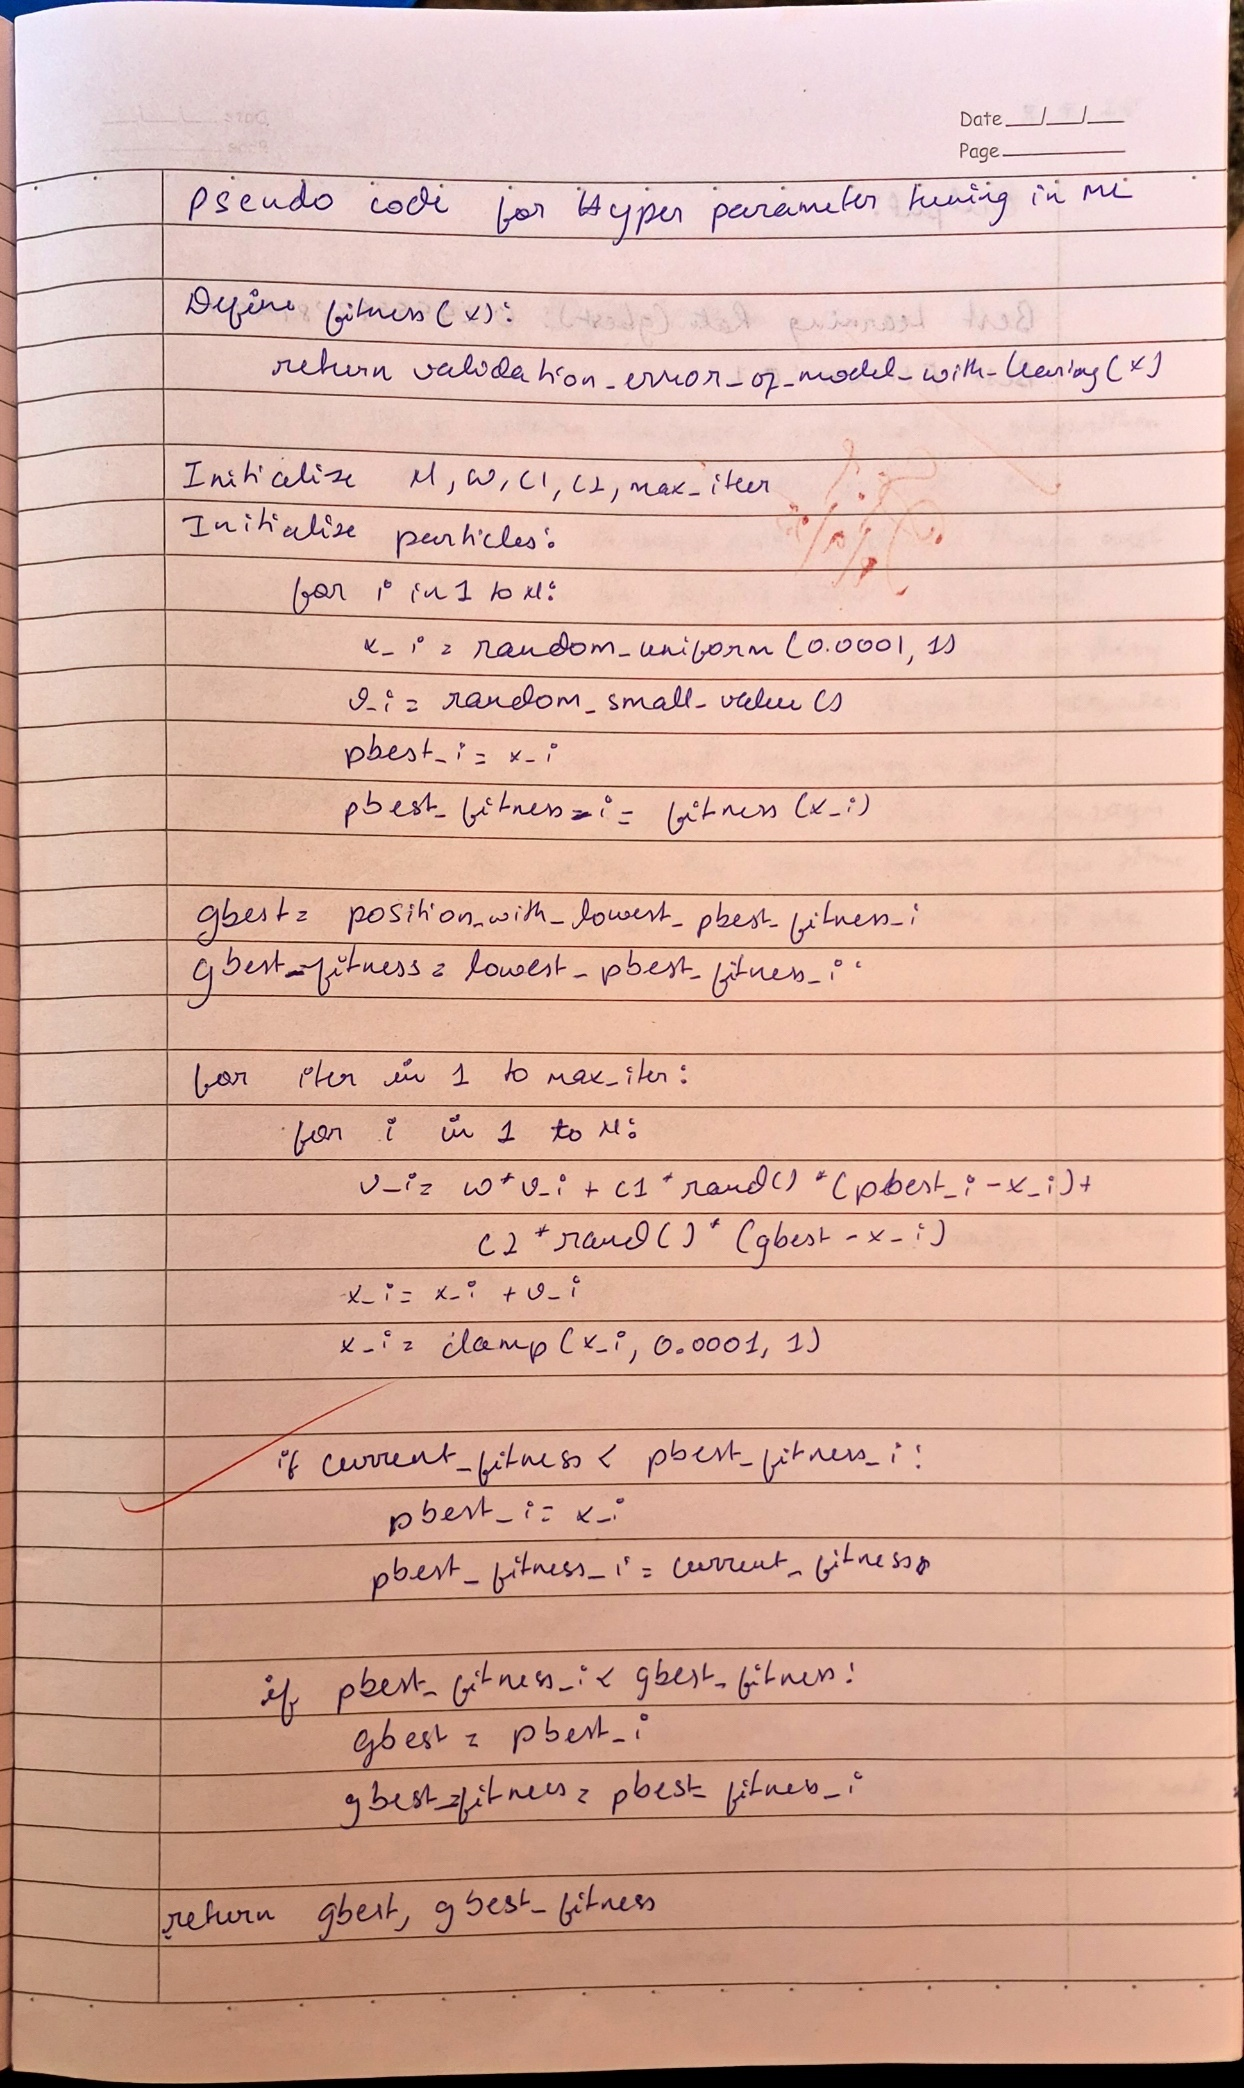 Date __/__/__
Page
Pseudo code for Hyper parameter tuning in ML
Define fitness(x):
return validation_error_of_model_with_learing(x)
Initialize N, w, c1, c2, max_iter
Initialize particles:
for i in 1 to N:
x_i = random_uniform(0.0001, 1)
v_i = random_small_value()
pbest_i = x_i
pbest_fitness_i = fitness(x_i)
gbest = position_with_lowest_pbest_fitness_i
gbest_fitness = lowest_pbest_fitness_i
for iter in 1 to max_iter:
for i in 1 to N:
v_i = w*v_i + c1*rand()*(pbest_i - x_i) +
c2*rand()*(gbest - x_i)
x_i = x_i + v_i
x_i = clamp(x_i, 0.0001, 1)
if current_fitness < pbest_fitness_i:
pbest_i = x_i
pbest_fitness_i = current_fitness
if pbest_fitness_i < gbest_fitness:
gbest = pbest_i
gbest_fitness = pbest_fitness_i
return gbest, gbest_fitness